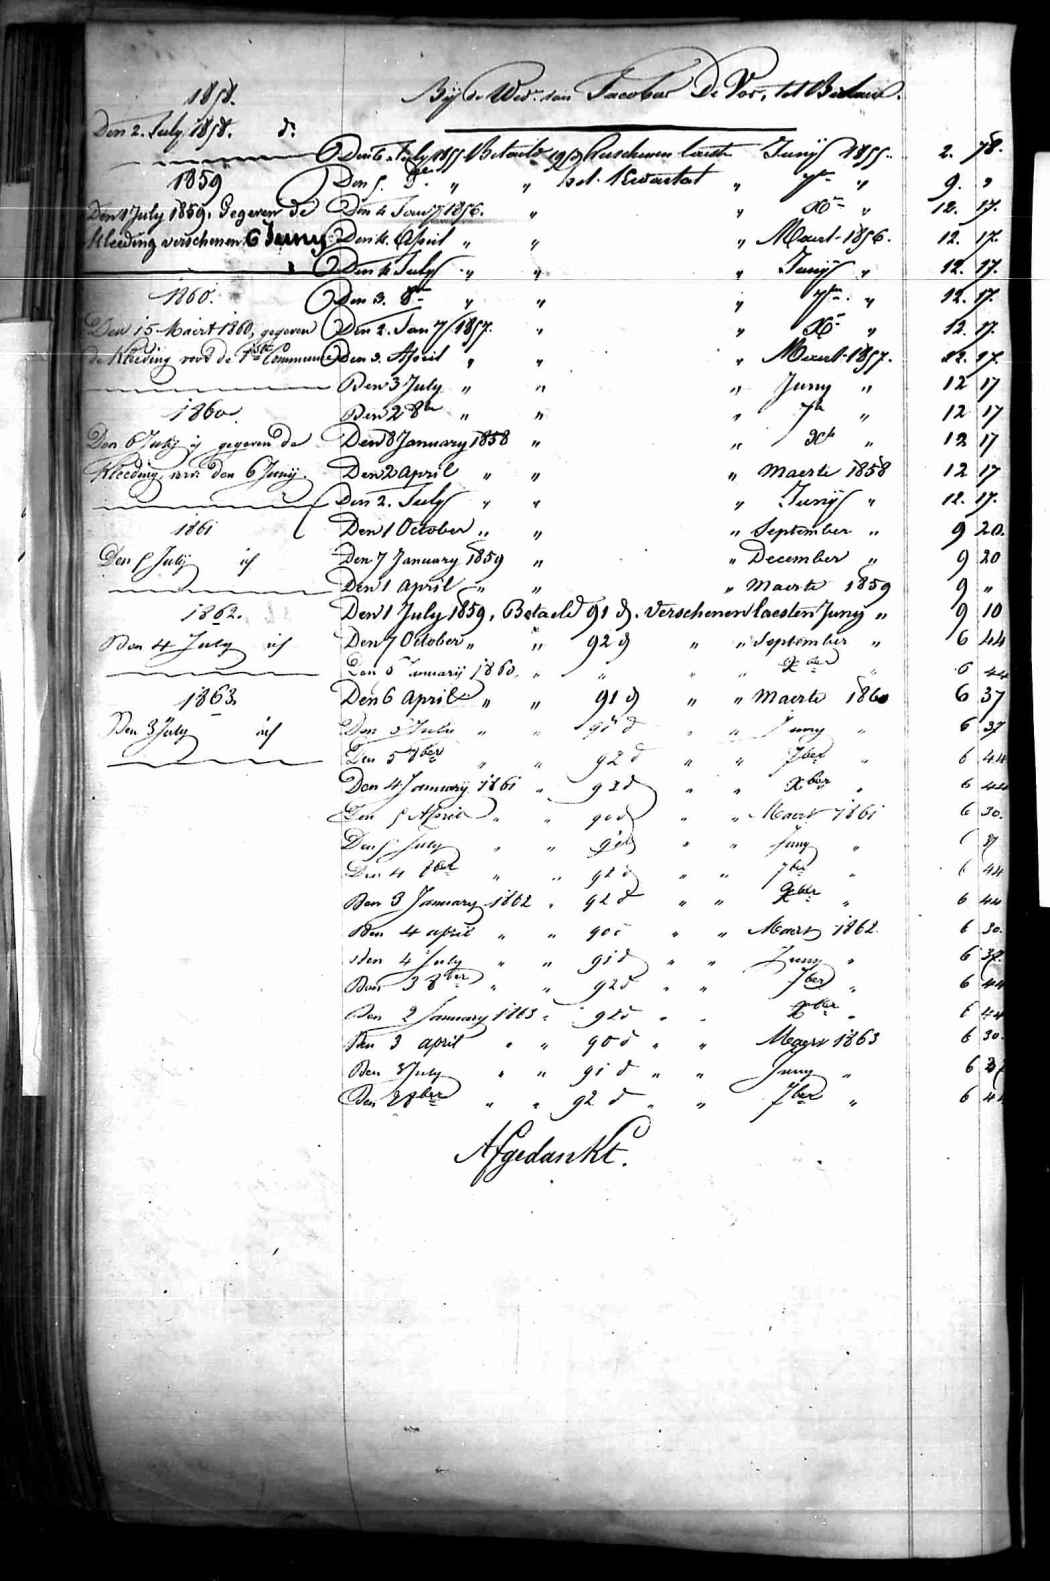 1858.
Den 2. July 1858. d°
1859
Den 1 July 1859, Gegeven de
Kleeding verschenen 6 Juny
1860.
Den 15 Maert 1860, gegeven
de Kleeding voor de 1ste Communie
1860
Den 6 July is gegeven de
Kleeding, voor den 6 Junij.
1861
Den 5 July id
1862.
Den 4 July id
1863
Den 3 July id
Bij de Wedr. van Jacobus De Vos, tot
Den 6 July 1855 Betaelt 19/d Verschenen laest Junij 1855. 2. 78.
Den 5. 8bre " " het Kwartal " 7br " 9. "
Den 4 Jany 1856. " " Xbr " 12. 17.
Den 4. April " " " Maert 1856. 12. 17.
Den 4 July " " " Junij " 12. 17.
Den 3. 8br " " " 7br " 12. 17.
Den 2. Jany 1857. " " Xbr " 12. 17
Den 3. April " " " Maert 1857. 12. 17.
Den 3 July " " " Juny " 12 17
Den 2 8br " " " 7br " 12 17
Den 8 January 1858 " " Xbr " 12 17
Den 2 April " " " Maerte 1858 12 17
Den 2. July " " " Junij " 12. 17.
Den 1 October " " " September " 9 20.
Den 7 January 1859 " " December " 9 20
Den 1 April " " " Maerte 1859 9 "
Den 1 July 1859, Betaeld 91 d. Verschenen laesten Juny " 9 10
Den 7 October " " 92 d " " September " 6 44
Den 5 Januarij 1860. " " " " Xber " 6 44
Den 6 April " " 91 d " " Maerte 1860 6 37
Den 5 Julii " " 91 d " " Juny " 6 37
Den 5 8ber " " 92 d " " 7ber " 6 44
Den 4 Januarij 1861 " 92 d " " Xber " 6 44
Den 5 April " " 90 d " " Maert 1861 6 30.
Den 5 July " " 91 d " " Juny " 6 37
Den 4 8ber " " 92 d " " 7ber " 6 44
Den 3 January 1862 " 92 d " " Xber " 6 44
Den 4 april " " 90 d " " Maert 1862 6 30.
Den 4 July " " 91 d " " Juny " 6 37.
Den 3 8ber " " 92 d " " 7ber " 6 44
Den 2 January 1863 " 92 d " " Xber " 6 44
Den 3 april " " 90 d " " Maert 1863 6 30.
Den 3 July " " 91 d " " Juny " 6 37
Den 2 8ber " " 92 d " " 7ber " 6 44
Afgedankt.